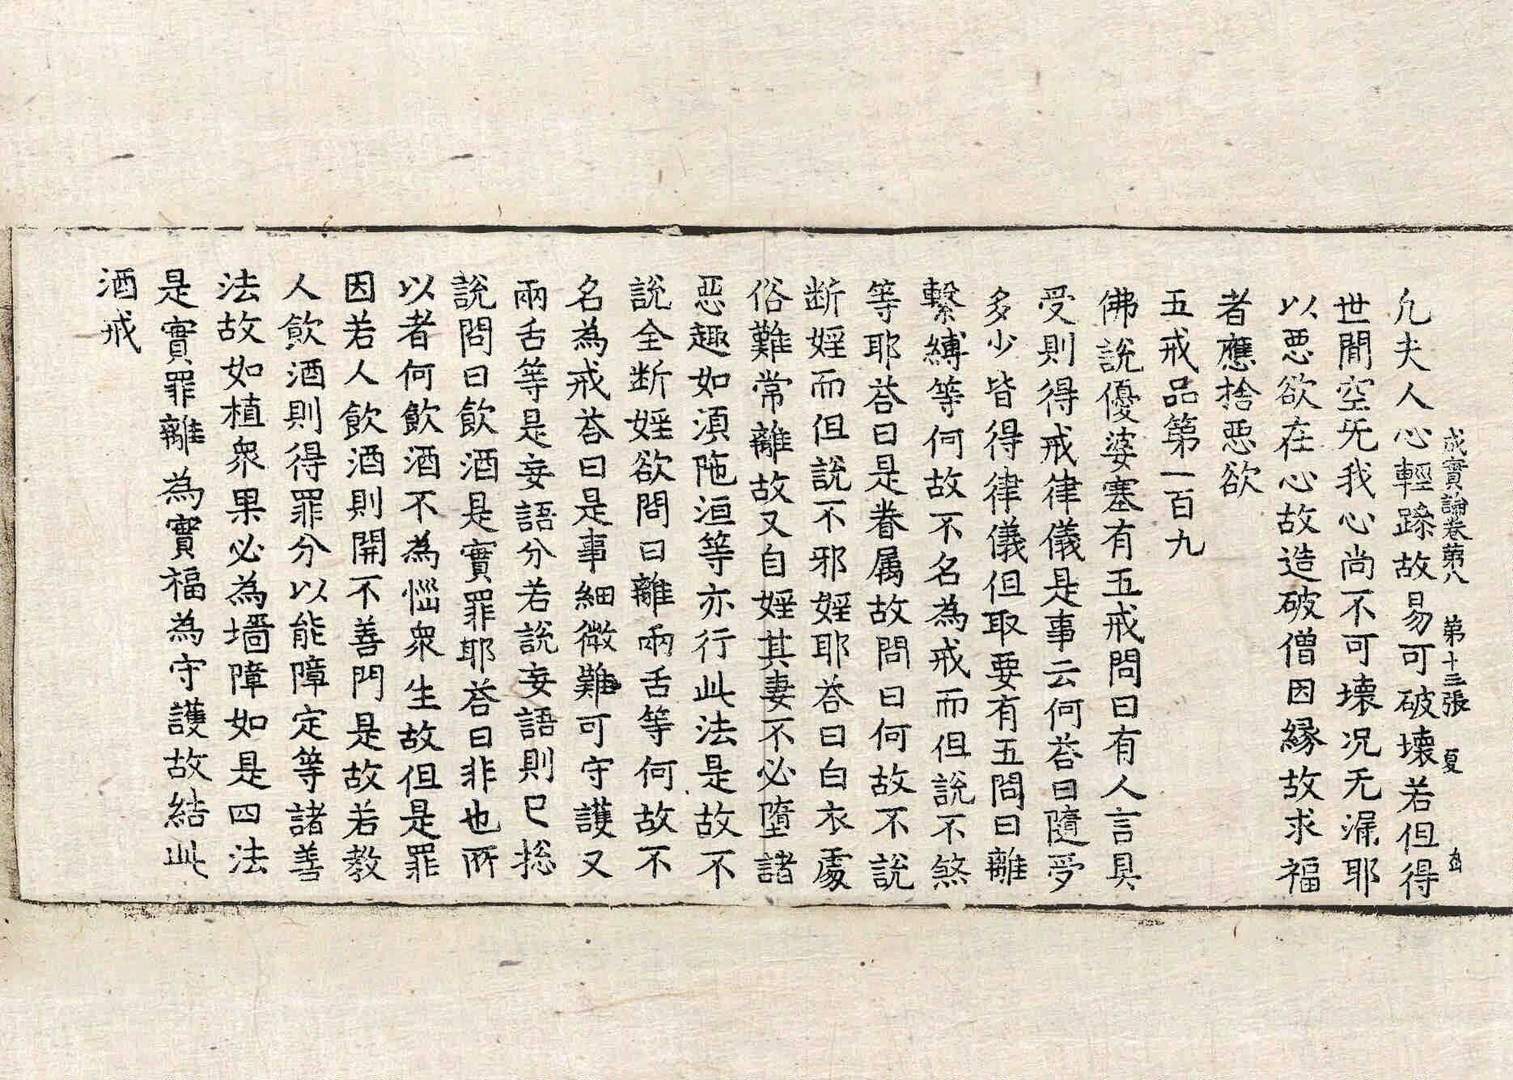 成實論卷第八 第十三張 夏
凡夫人心輕躁故易可破壞若但得
世間空无我心尚不可壞况无漏耶
以惡欲在心故造破僧因縁故求福
者應捨惡欲
五戒品第一百九
佛說優婆塞有五戒問曰有人言具
受則得戒律儀是事云何荅曰隨受
多少皆得律儀但取要有五問曰離
繫縛等何故不名為戒而但說不煞
等耶荅曰是眷属故問曰何故不說
断婬而但說不邪婬耶荅曰白衣處
俗難常離故又自婬其妻不必墮諸
惡趣如湏陁洹等亦行此法是故不
說全断婬欲問曰離兩舌等何故不
名為戒荅曰是事細微難可守護又
兩舌等是妄語分若說妄語則已捴
說問曰飲酒是實罪耶荅曰非也所
以者何飲酒不為惱衆生故但是罪
因若人飲酒則開不善門是故若教
人飲酒則得罪分以能障定等諸善
法故如植衆果必為墻障如是四法
是實罪離為實福為守護故結此
酒戒